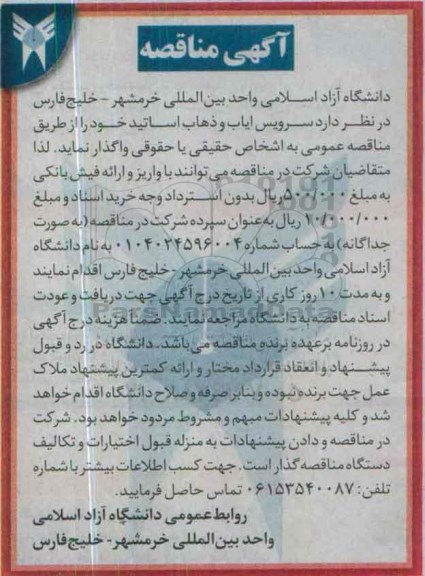 آگهی مناقصه
دانشگاه آزاد اسلامی واحد بین‌المللی خرمشهر - خلیج‌فارس
در نظر دارد سرویس ایاب و ذهاب اساتید خود را از طریق
مناقصه عمومی به اشخاص حقیقی یا حقوقی واگذار نماید. لذا
متقاضیان شرکت در مناقصه می‌توانند با واریز و ارائه فیش بانکی
به مبلغ ۵۰۰/۰۰۰ ریال بدون استرداد وجه خرید اسناد و مبلغ
۱۰/۰۰۰/۰۰۰ ریال به عنوان سپرده شرکت در مناقصه (به صورت
جداگانه) به حساب شماره ۰۱۰۴۰۲۴۵۹۶۰۰۴ به نام دانشگاه
آزاد اسلامی واحد بین‌المللی خرمشهر - خلیج فارس اقدام نمایند
و به مدت ۱۰ روز کاری از تاریخ درج آگهی جهت دریافت و عودت
اسناد مناقصه به دانشگاه مراجعه نمایند. ضمناً هزینه درج آگهی
در روزنامه بر عهده برنده مناقصه می‌باشد. دانشگاه در رد و قبول
پیشنهاد و انعقاد قرارداد مختار و ارائه کمترین پیشنهاد ملاک
عمل جهت برنده نبوده و بنابر صرفه و صلاح دانشگاه اقدام خواهد
شد و کلیه پیشنهادات مبهم و مشروط مردود خواهد بود. شرکت
در مناقصه و دادن پیشنهادات به منزله قبول اختیارات و تکالیف
دستگاه مناقصه گذار است. جهت کسب اطلاعات بیشتر با شماره
تلفن: ۰۶۱۵۳۵۴۰۰۸۷ تماس حاصل فرمایید.
روابط عمومی دانشگاه آزاد اسلامی
واحد بین‌المللی خرمشهر - خلیج‌فارس